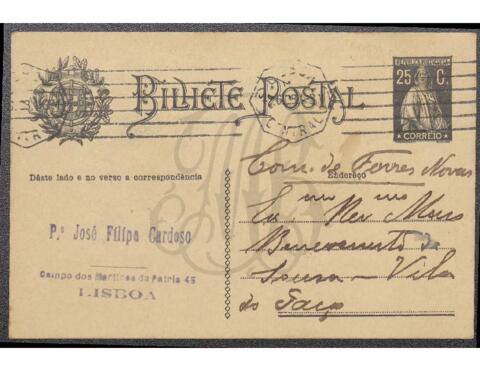 BILHETE POSTAL
REPUBLICA PORTUGUESA
25 C.
CORREIO
CENTRAL
Dêste lado e no verso a correspondência
Endereço
P.e José Filipe Cardoso
Campo dos Martires da Patria 45
LISBOA
Con. de Torres Novas
Ex mo Rev mo
Benevenuto de
Sousa - Vila
do Paço